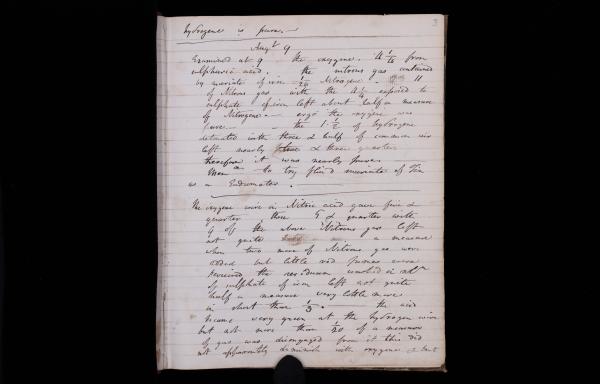 3
hydrogene is pure.—
Augt 9
Examined at 9 the oxygene. 4 1/4 from
sulphuric acid. the nitrous gas contained
by muriate of iron 1/20 Nitrogene. 11
of Nitrous gas with the 4 1/4 exposed to
sulphate of iron left about half a measure
of Nitrogene — ergo the oxygene was
pure. — the 1 1/2 of hydrogene
detonated with three & half of common air
left nearly three & three quarters
therefore it was nearly pure.
to try fluid muriate of Tin
as a Eudiometer.
The oxygene wire in Nitric acid gave five &
quarter. these 5 & quarter with
9 of the above Nitrous gas left
not quite a measure
when two more of Nitrous gas were
added but little red fumes were
perceived the residuum washed in
of sulphate of iron left not quite
half a measure very little more
in short than 1/3. — the acid
became very green at the hydrogen wire
but not more than 1/20 of a measure
of gas was disengaged from it this did
not apparently diminish with oxygene & but